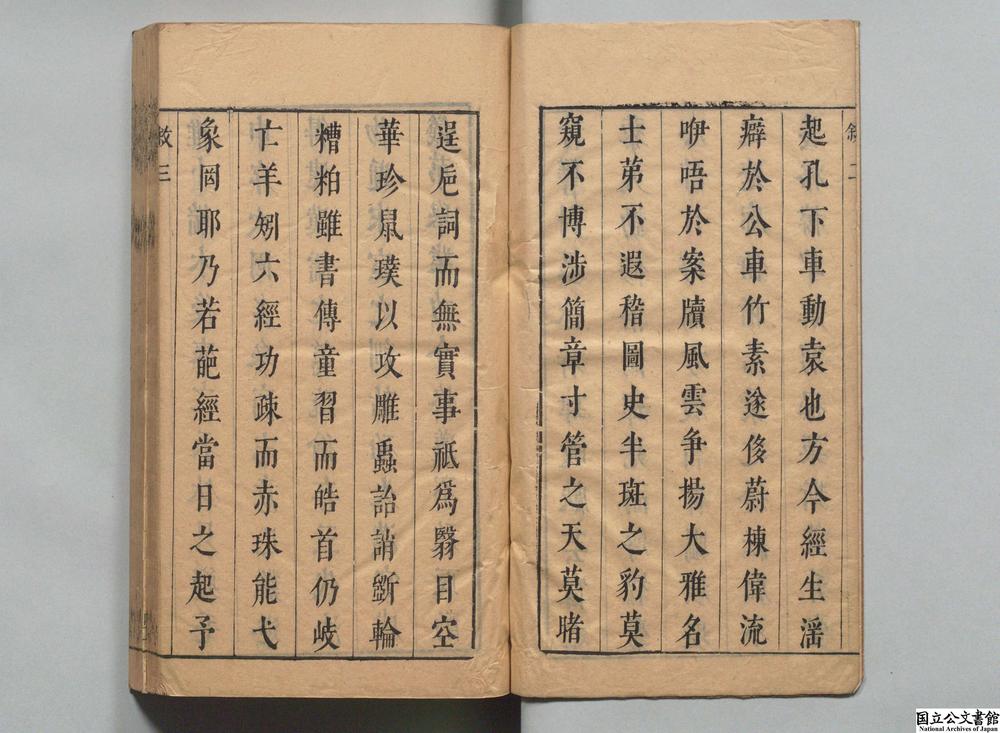 敘 二
起孔下車動袁也方今經生滛
癖於公車竹素逡侈蔚棟偉流
咿唔於案牘風雲争揚大雅名
士弟不遐稽圖史半斑之豹莫
窺不博涉簡章寸管之天莫睹
逞巵詞而無實事祗爲翳目空
華珍鼠璞以攻雕蟲詒誚斵輪
糟粕雖書傳童習而皓首仍岐
亡羊矧六經功疎而赤珠能弋
象罔耶乃若葩經當日之起予
敘 三
国立公文書館
National Archives of Japan